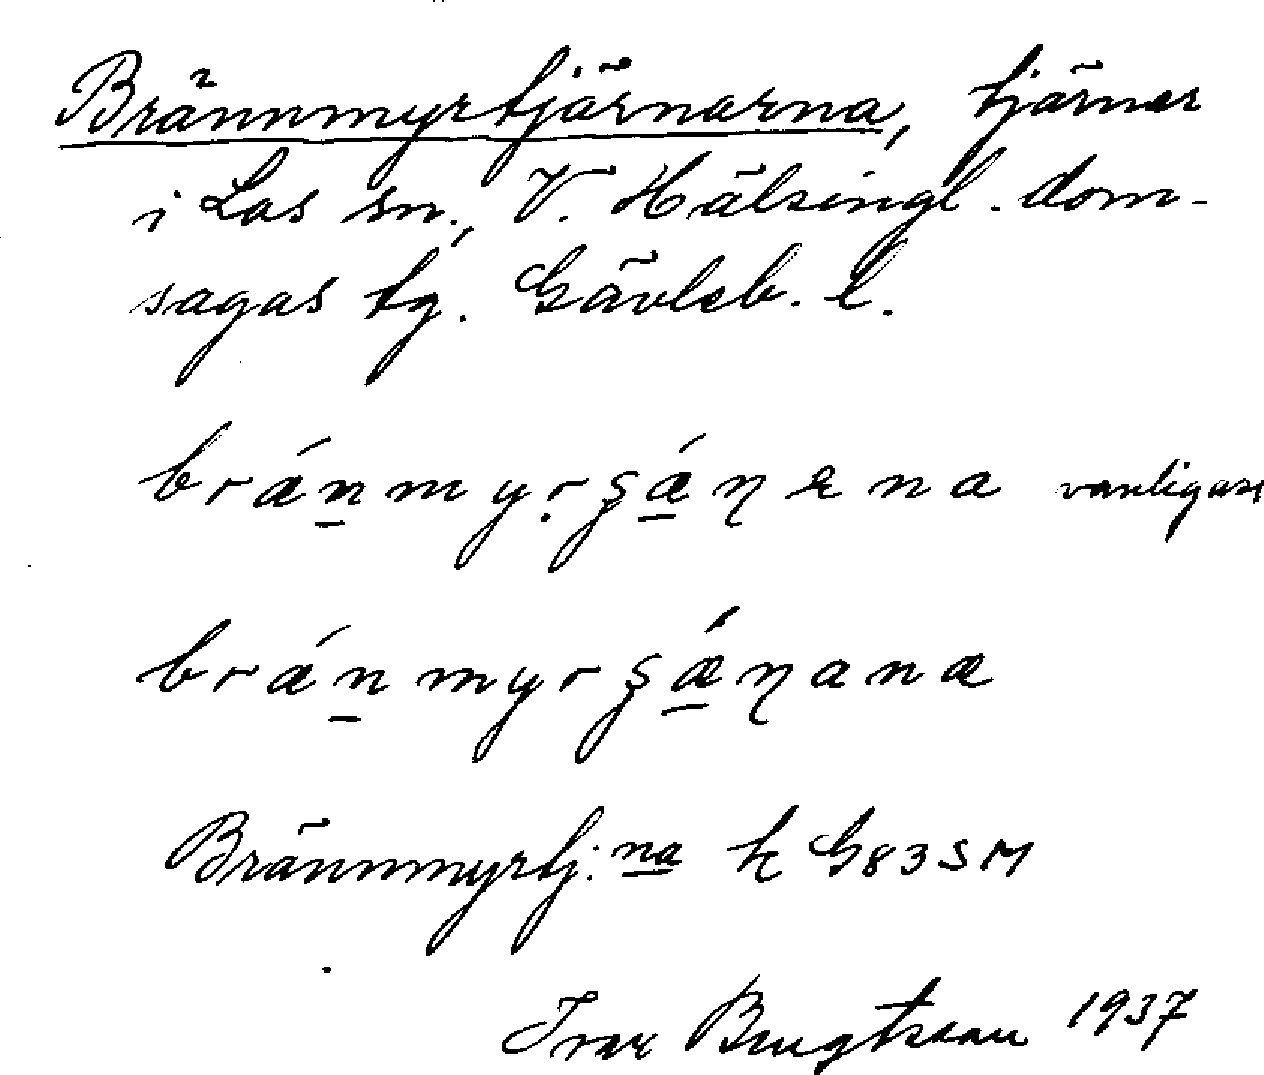 Brännmyrtjärnarna, tjärnar
i Los sn., V. Hälsingl. dom-
sagas tg. Gävleb. l.
brǽn̲myṛʂǽ̲ɳena vanligast
brǽn̲myrʂǽ̲ɳana
Brännmyrtj:na k G83SM
Ivar Bengtsson 1937